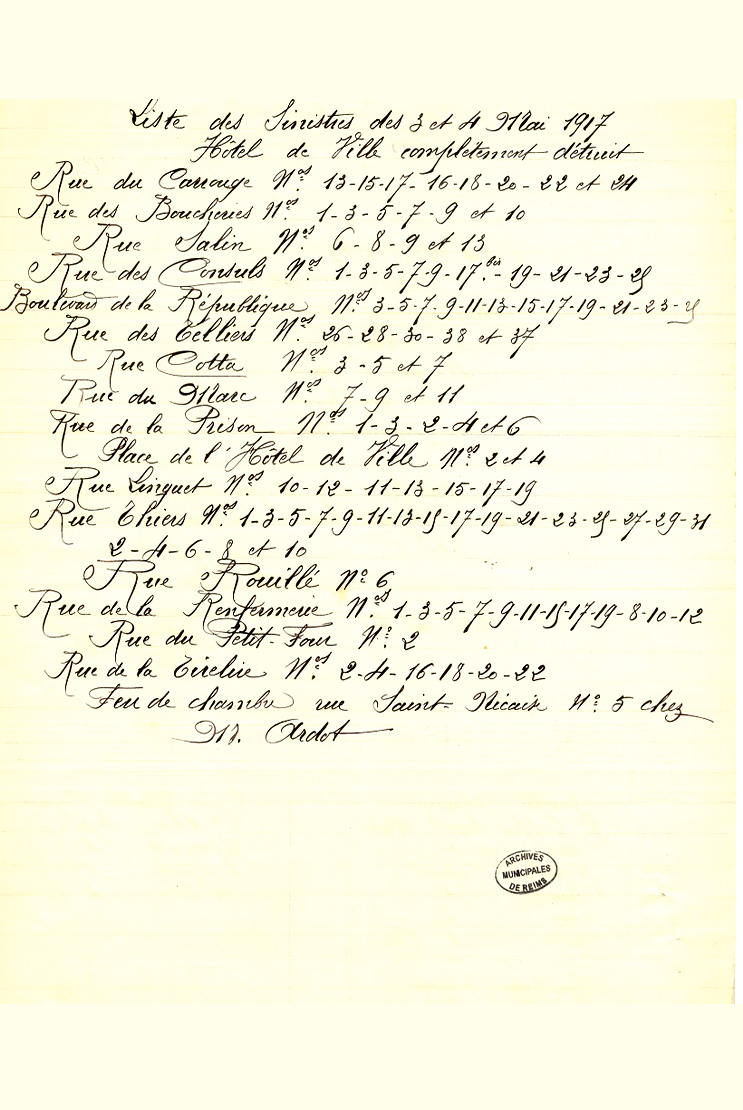 Liste des Sinistres des 3 et 4 Mai 1917
Hôtel de Ville complètement détruit
Rue du Carrouge Nos 13-15-17- 16-18-20- 22 et 24
Rue des Boucheries Nos 1-3-5-7-9 et 10
Rue Salin Nos 6-8-9 et 13
Rue des Consuls Nos 1-3-5-7-9-17bis- 19-21-23-25
Boulevard de la République Nos 3-5-7-9-11-13-15-17-19-21-23-25
Rue des Telliers Nos 26-28-30-38 et 37
Rue Cotta Nos 3-5 et 7
Rue du Marc Nos 7-9 et 11
Rue de la Prison Nos 1-3-2-4 et 6
Place de l'Hôtel de Ville Nos 2 et 4
Rue Linguet Nos 10-12-11-13-15-17-19
Rue Thiers Nos 1-3-5-7-9-11-13-15-17-19-21-23-25-27-29-31
2-4-6-8 et 10
Rue Rouillé No 6
Rue de la Renfermerie Nos 1-3-5-7-9-11-15-17-19-8-10-12
Rue du Petit-Four No 2
Rue de la Tirelire Nos 2-4-16-18-20-22
Feu de chambre rue Saint-Nicaise No 5 chez
M. Ardot
ARCHIVES
MUNICIPALES
DE REIMS